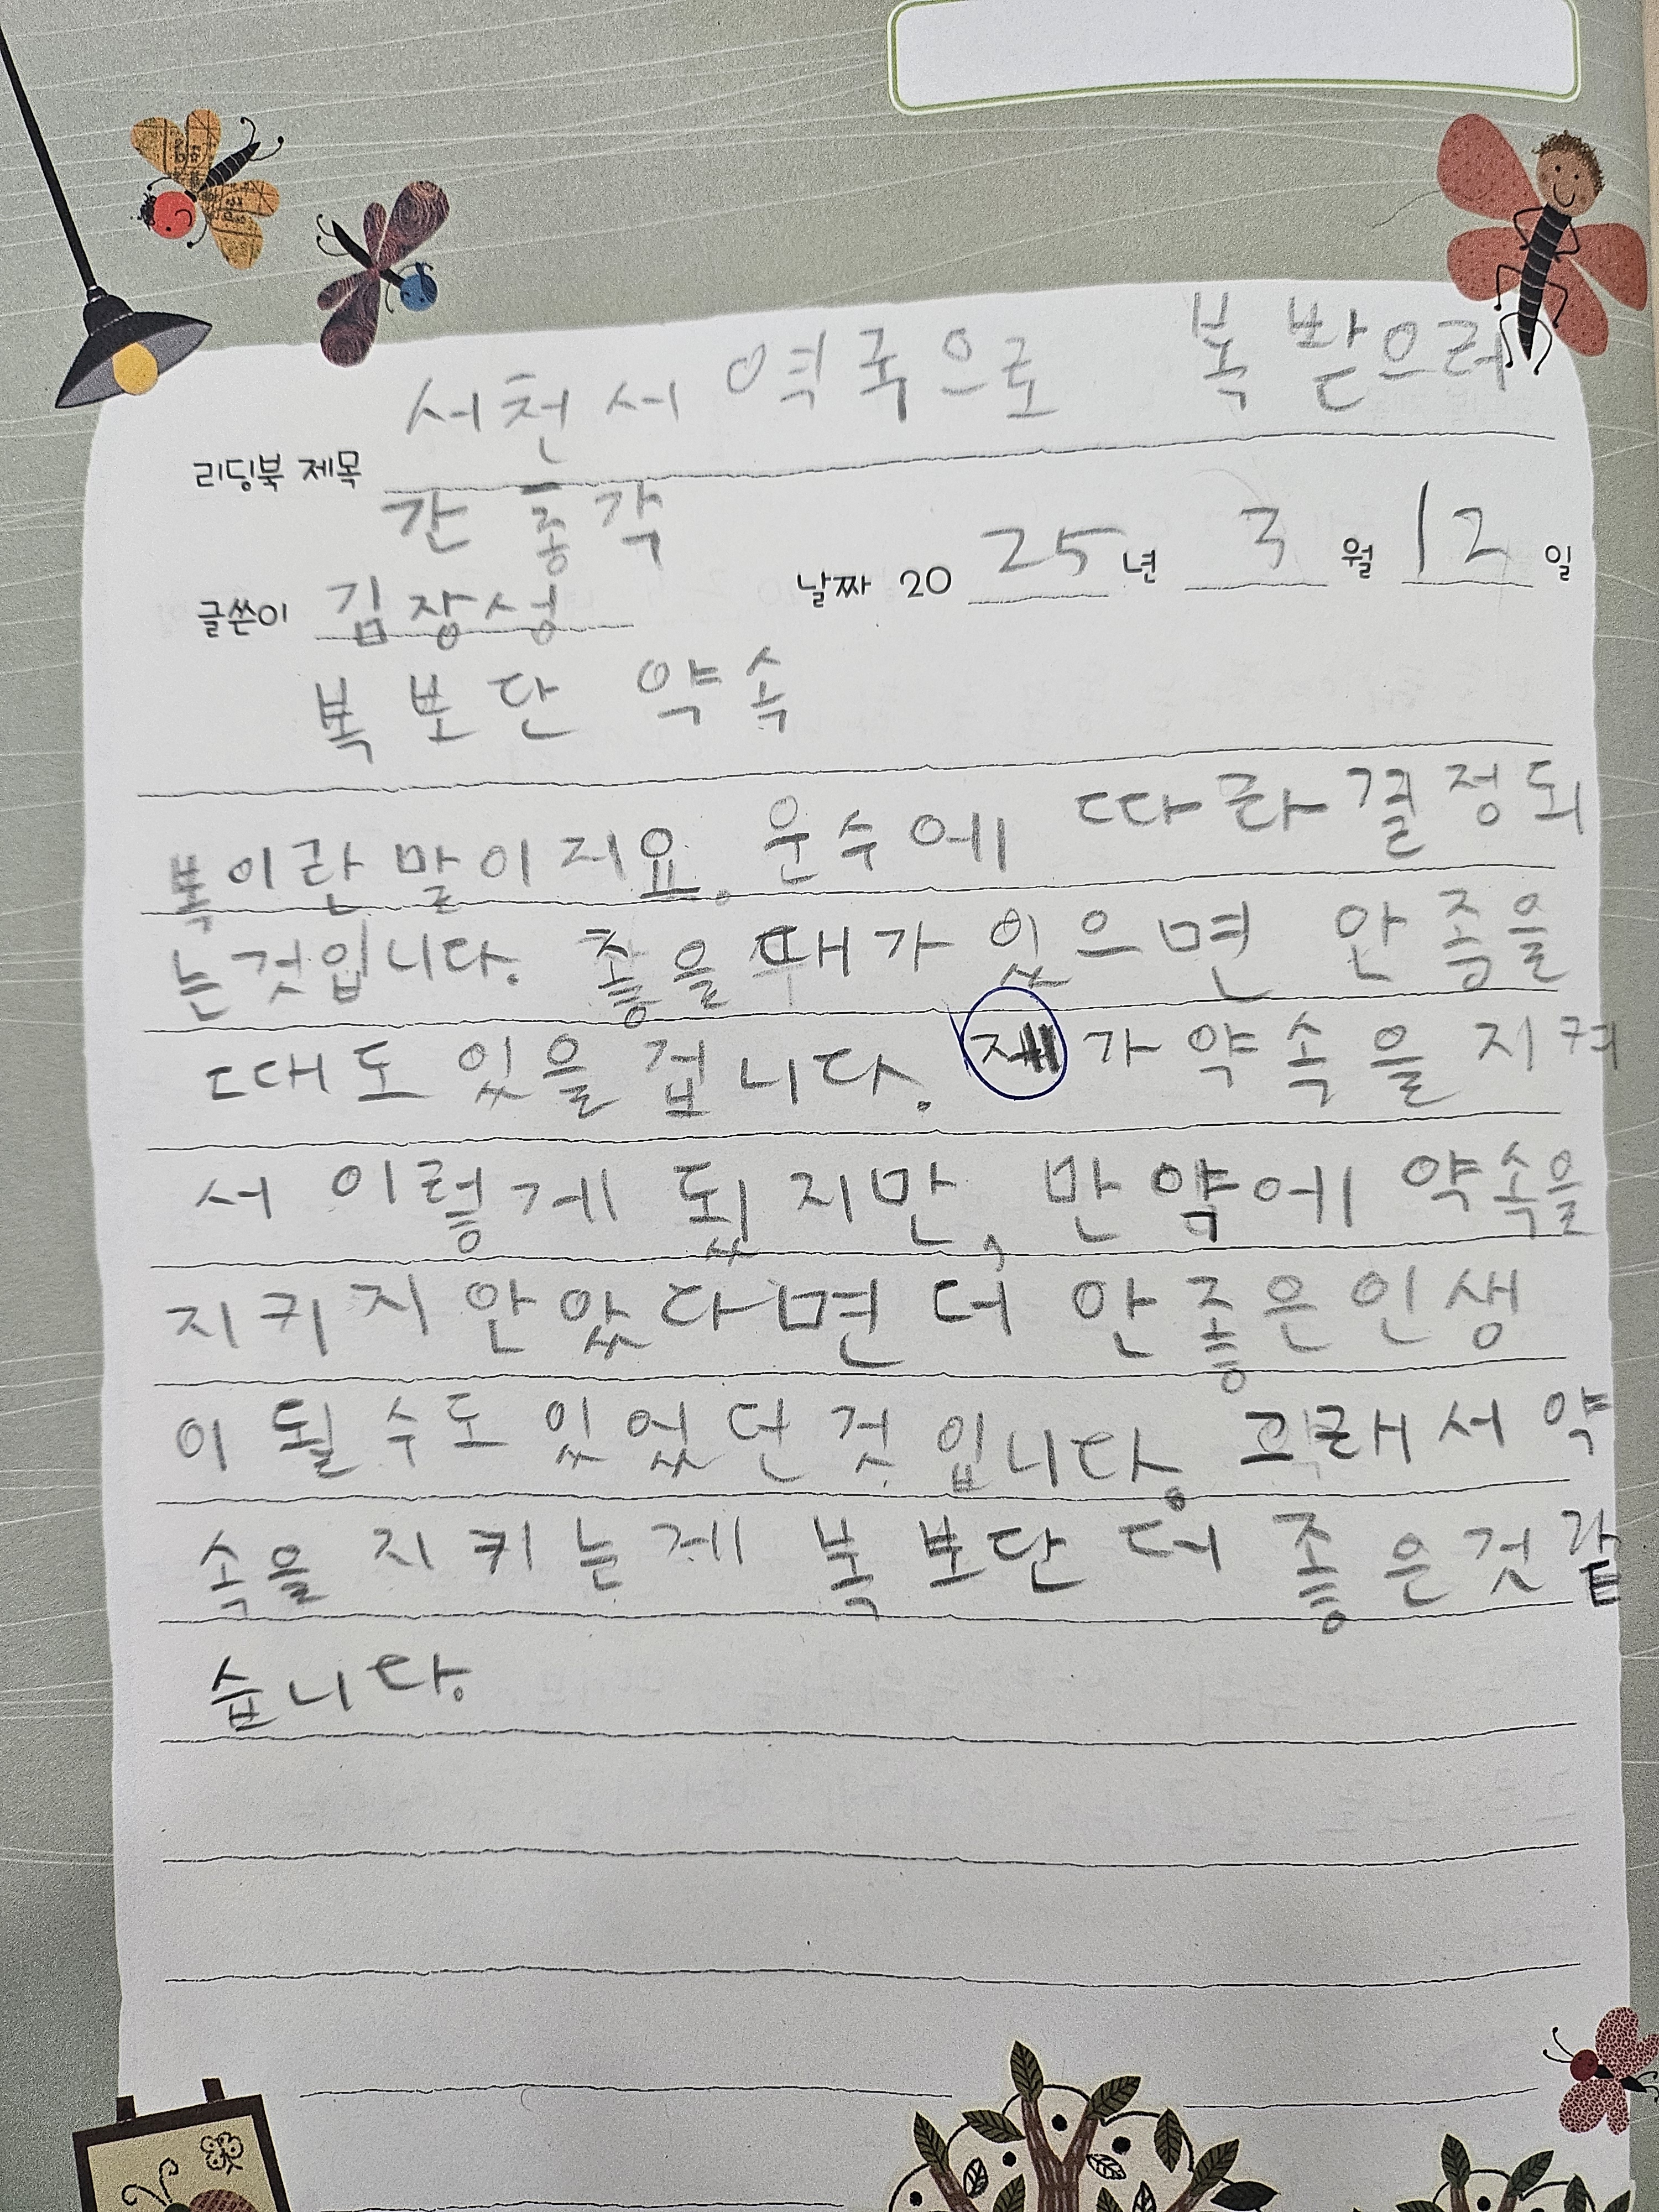 서천서 역국으로 복 받으러
리딩북 제목
간 총각
글쓴이 김장성 날짜 2025년 3월 12일
복 보단 약속
복이란 말이지요. 운수에 따라 결정되
는것입니다. 좋을 때가 있으면 안 좋을
때도 있을 겁니다. 제가 약속을 지켜
서 이렇게 됬지만, 만약에 약속을
지키지 안았다면 더 안 좋은 인생
이 될 수도 있었던 것 입니다. 그래서 약
속을 지키는게 복 보단 더 좋은것 같
습니다.